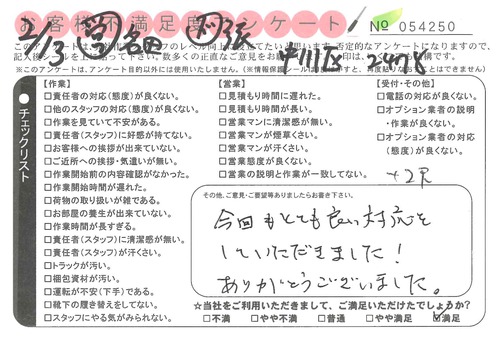 お客様不満足度アンケート
No 054250
2/3
※このアンケートは、アンケート目的以外には使用いたしません。
チェックリスト
【作業】
□責任者の対応(態度)が良くない。
□他のスタッフの対応(態度)が良くない。
□作業を見ていて不安がある。
□責任者(スタッフ)に好感が持てない。
□お客様への挨拶が出来ていない。
□ご近所への挨拶・気遣いが無い。
□作業開始前の内容確認がなかった。
□作業開始時間が遅れた。
□荷物の取り扱いが雑である。
□お部屋の養生が出来ていない。
□作業時間が長すぎる。
□責任者(スタッフ)に清潔感が無い。
□責任者(スタッフ)が汗くさい。
□トラックが汚い。
□梱包資材が汚い。
□運転が不安(下手)である。
□靴下の履き替えをしてない。
□スタッフにやる気がみられない。
【営業】
□見積もり時間に遅れた。
□見積もり時間が長い。
□営業マンに清潔感が無い。
□営業マンが煙草くさい。
□営業マンが汗くさい。
□営業態度が良くない。
□営業の説明と作業が一致してない。
【受付・その他】
□電話の対応が良くない。
□オプション業者の説明
・作業が良くない。
□オプション業者の対応
(態度)が良くない。
その他、ご意見・ご要望等ありましたらお書き下さい。
今回もとても良い対応を
していただきました!
ありがとうございました。
☆当社をご利用いただきまして、ご満足いただけたでしょうか?
□不満 □やや不満 □普通 □やや満足 ☑満足